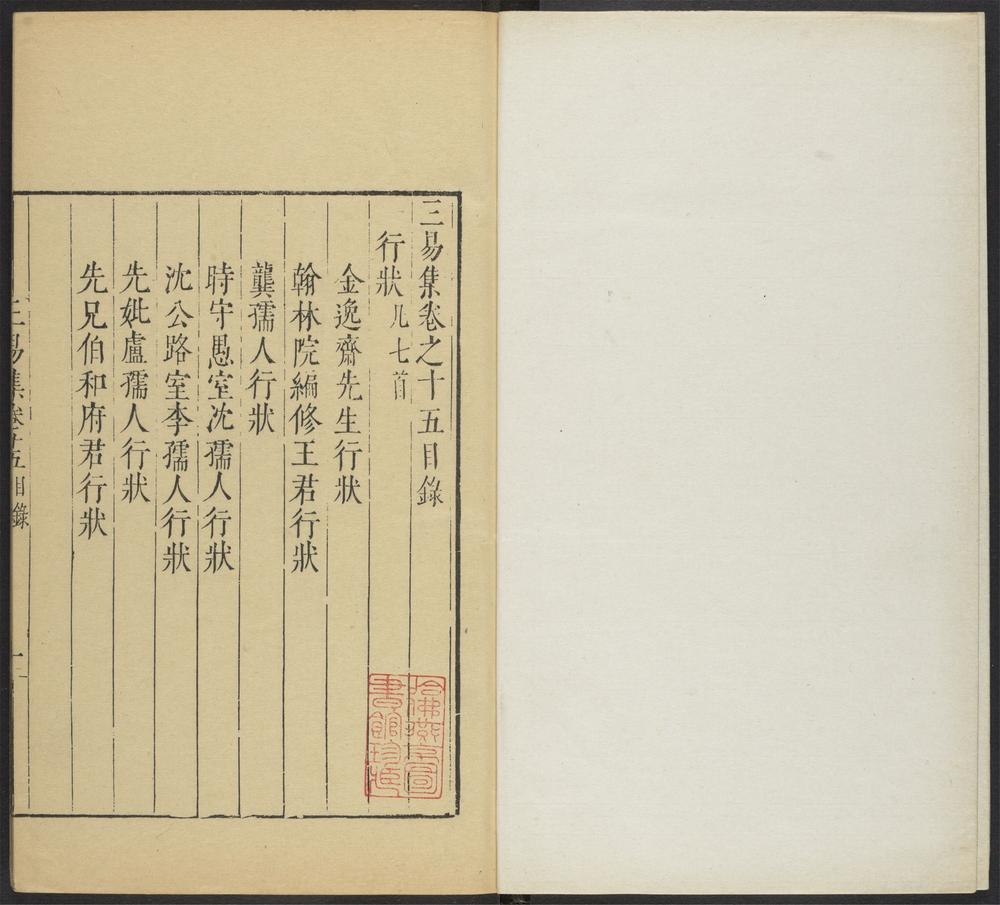 三易集卷之十五目錄
行狀 凡七首
金逸齋先生行狀
翰林院編修王君行狀
龔孺人行狀
時守愚室沈孺人行狀
沈公路室李孺人行狀
先妣盧孺人行狀
先兄伯和府君行狀
三易集 卷十五目錄 一
哈佛燕京圖
書館珍藏